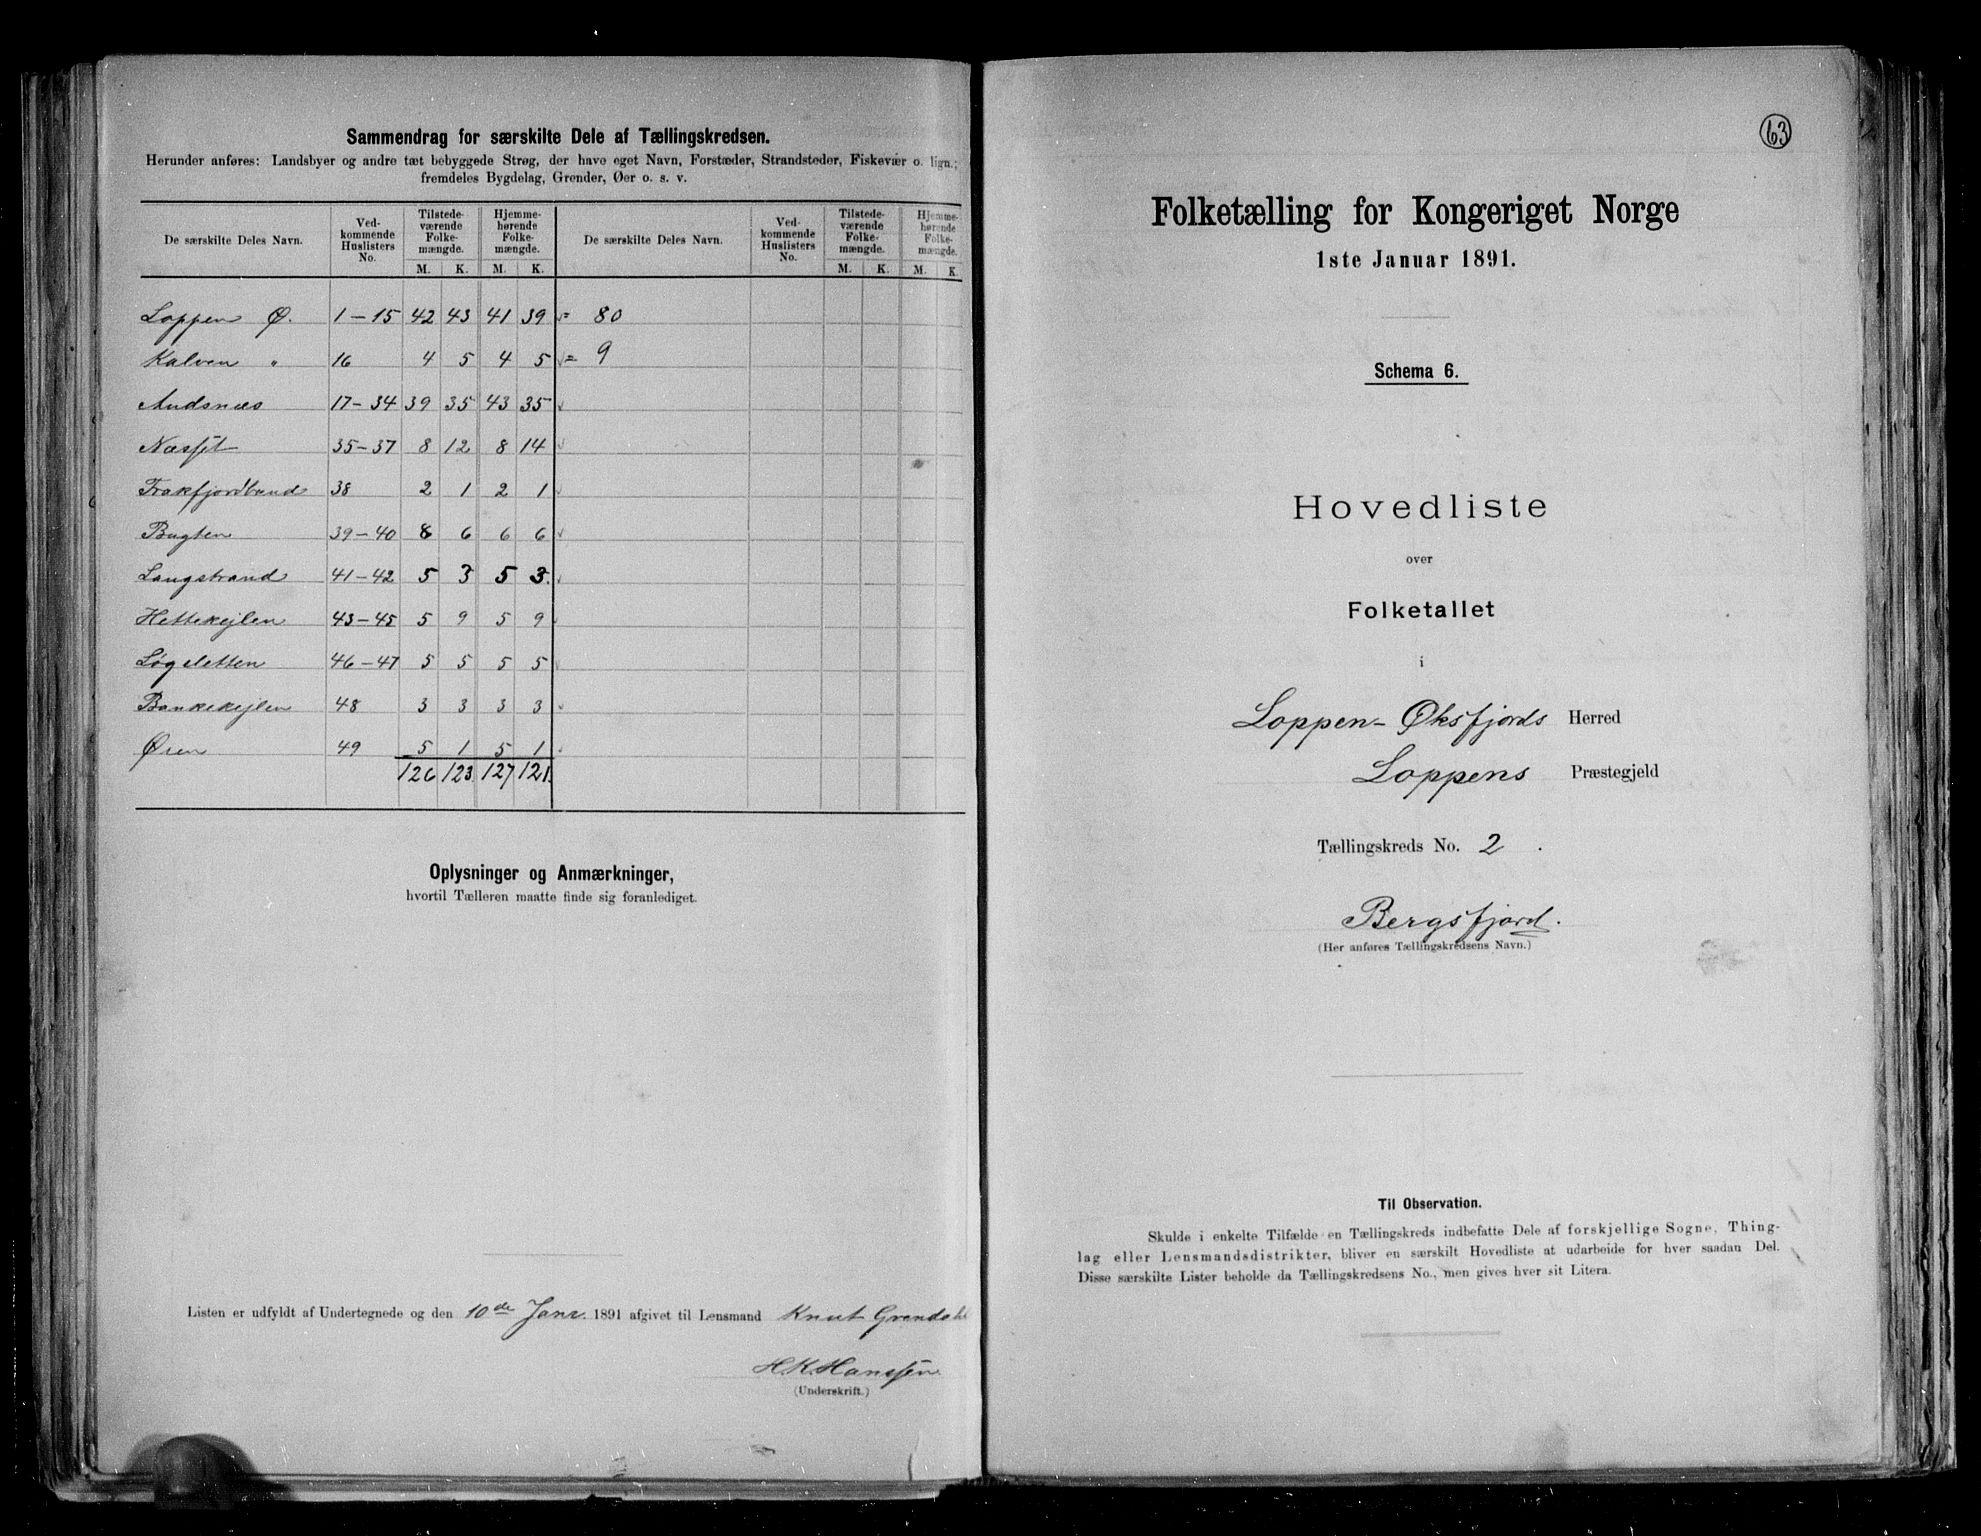 Sammendrag for særskilte Dele af Tællingskredsen.
Herunder anføres: Landsbyer og andre tæt bebyggede Strøg, der have eget Navn, Forstæder, Strandsteder, Fiskevær o. lign.;
fremdeles Bygdelag, Grender, Øer o. s. v.
De særskilte Deles Navn. Ved-kommende Huslisters No. Tilstede-værende Folke-mængde. Hjemme-hørende Folke-mængde. De særskilte Deles Navn. Ved-kommende Huslisters No. Tilstede-værende Folke-mængde. Hjemme-hørende Folke-mængde.
M. K. M. K. M. K. M. K.
Loppen Ø. 1-15 42 43 41 39 = 80
Kalven " 16 4 5 4 5 = 9
Andsnæs 17-34 39 35 43 35
Næsset 35-37 8 12 8 14
Frakfjordbund 38 2 1 2 1
Bugten 39-40 8 6 6 6
Langstrand 41-42 5 3 5 3.
Hettekejlen 43-45 5 9 5 9
Løgsletten 46-47 5 5 5 5
Bankekejlen 48 3 3 3 3
Øren 49 5 1 5 1
126 123 127 121.
Oplysninger og Anmærkninger,
hvortil Tælleren maatte finde sig foranlediget.
Listen er udfyldt af Undertegnede og den 10de Janr. 1891 afgivet til Lensmand Knut Grendahl
H K Hanssen
(Underskrift.)
63
Folketælling for Kongeriget Norge
1ste Januar 1891.
Schema 6.
Hovedliste
over
Folketallet
i
Loppen-Øksfjords Herred
Loppens Præstegjeld
Tællingskreds No. 2.
Bergsfjord.
(Her anføres Tællingskredsens Navn.)
Til Observation.
Skulde i enkelte Tilfælde en Tællingskreds indbefatte Dele af forskjellige Sogne, Thing-
lag eller Lensmandsdistrikter, bliver en særskilt Hovedliste at udarbeide for hver saadan Del.
Disse særskilte Lister beholde da Tællingskredsens No., men gives hver sit Litera.